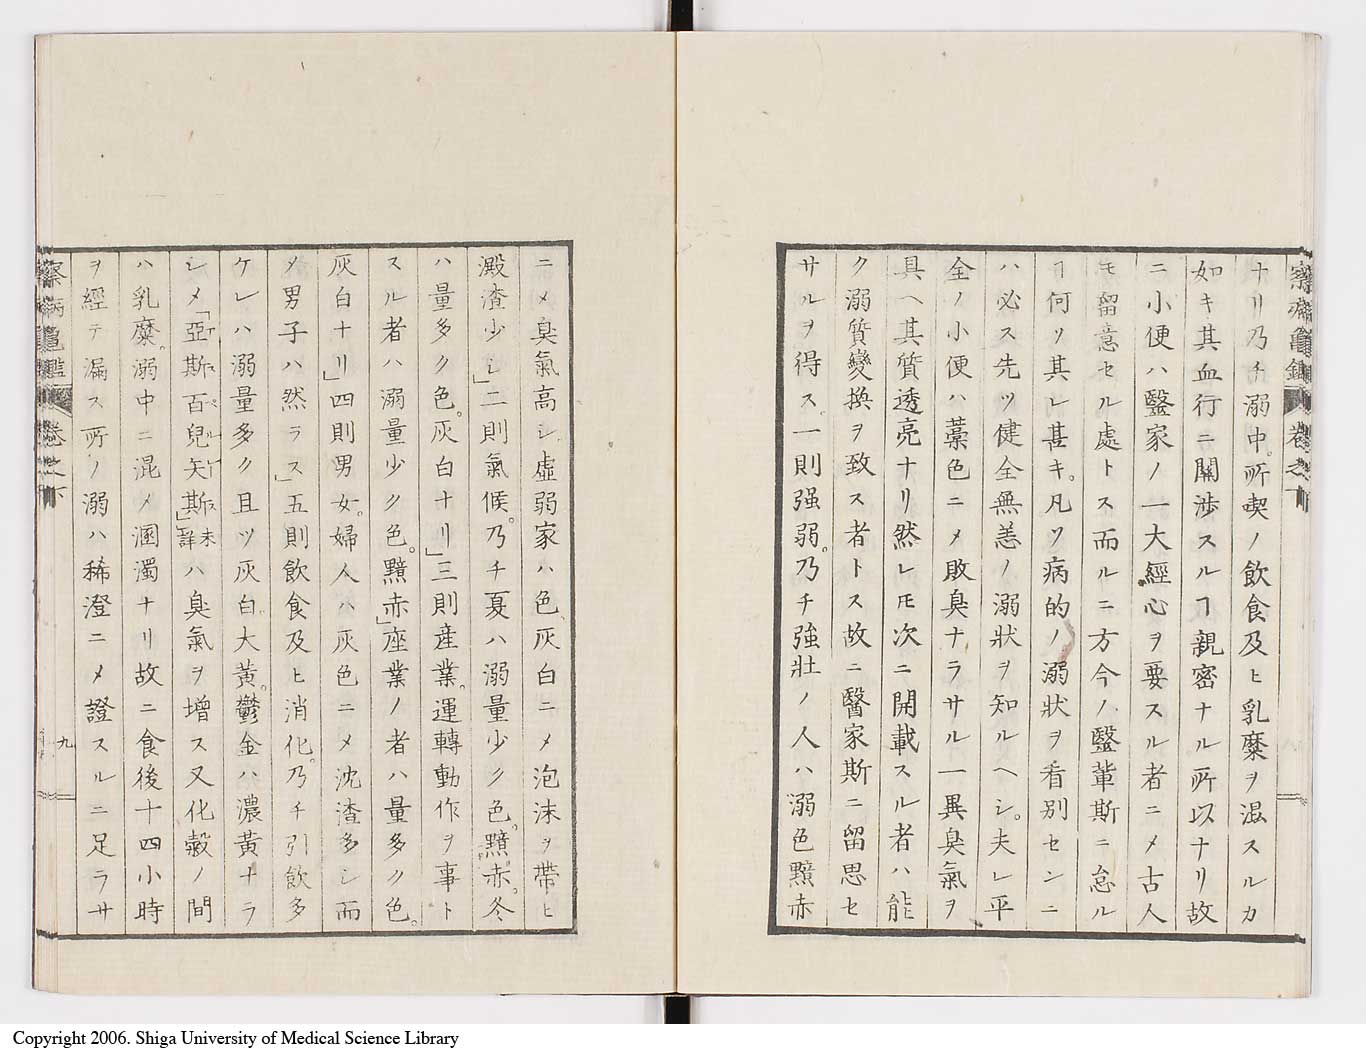 察病亀鑑 卷之下
ナリ乃チ溺中。所喫ノ飲食及ヒ乳糜ヲ混スルカ
如キ其血行ニ關渉スルヿ親密ナル所以ナリ故
ニ小便ハ醫家ノ一大經心ヲ要スル者ニメ古人
モ留意セル處トス而ルニ方今ノ醫輩斯ニ怠ル
ヿ何ソ其レ甚キ。凡ソ病的ノ溺狀ヲ看別センニ
ハ必ス先ツ健全無恙ノ溺狀ヲ知ルヘシ。夫レ平
全ノ小便ハ藁色ニメ敗臭ナラサル一異臭氣ヲ
具ヘ其質透亮ナリ然レ𪜈次ニ開載スル者ハ能
ク溺質變換ヲ致ス者トス故ニ醫家斯ニ留思セ
サルヲ得ス。一則强弱。乃チ強壯ノ人ハ溺色黯赤
ニメ臭氣高シ。虛弱家ハ色灰白ニメ泡沫ヲ帶ヒ
澱渣少シ」二則氣候。乃チ夏ハ溺量少ク色。黯赤。冬
ハ量多ク色。灰白ナリ」三則産業。運轉動作ヲ事ト
スル者ハ溺量少ク色。黯赤」座業ノ者ハ量多ク色。
灰白ナリ」四則男女。婦人ハ灰色ニメ沈渣多シ而
メ男子ハ然ラス」五則飲食及ヒ消化。乃チ引飲多
ケレハ溺量多ク且ツ灰白大黃。鬱金ハ濃黃ナラ
シメ「亞斯百兒矢斯」未詳ハ臭氣ヲ增ス又化穀ノ間
ハ乳糜。溺中ニ混メ溷濁ナリ故ニ食後十四小時
ヲ經テ漏ス所ノ溺ハ稀澄ニメ證スルニ足ラサ
察病亀鑑 卷之下
九
Copyright 2006. Shiga University of Medical Science Library